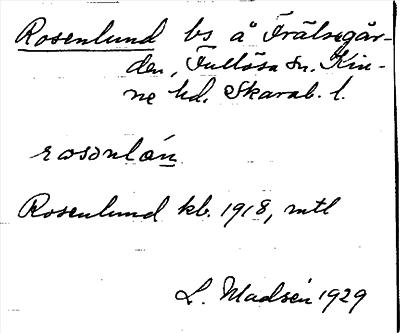 Rosenlund bs å Frälsegår-
den, Fullösa sn. Kin-
ne hd. Skarab. l.
Rosenlund kb. 1918, mtl
L. Madsén 1929